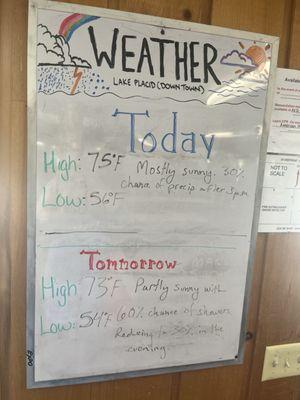 WEATHER
LAKE PLACID (DOWNTOWN)
Today
High: 75°F Mostly sunny. 30%
chance of precip after 3pm
Low: 56°F
Tommorrow
High 73°F Partly sunny with
Low: 54°F 60% chance of showers
Reducing to 30% in the
evening
NOT TO
SCALE